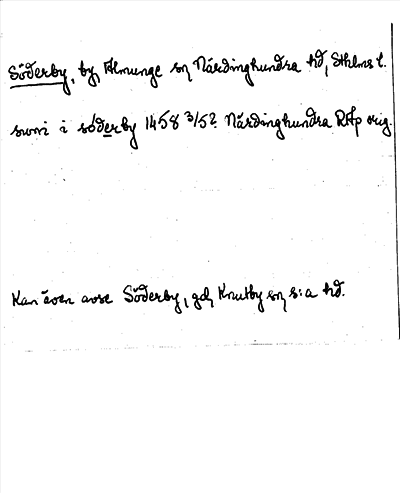 Söderby, by, Almunge sn, Närdinghundra hd, Sthlms l.
i söderby 1458 3/5? Närdinghundra RAp orig.
Kan även avse Söderby, gd, Knutby sn, s:a hd.